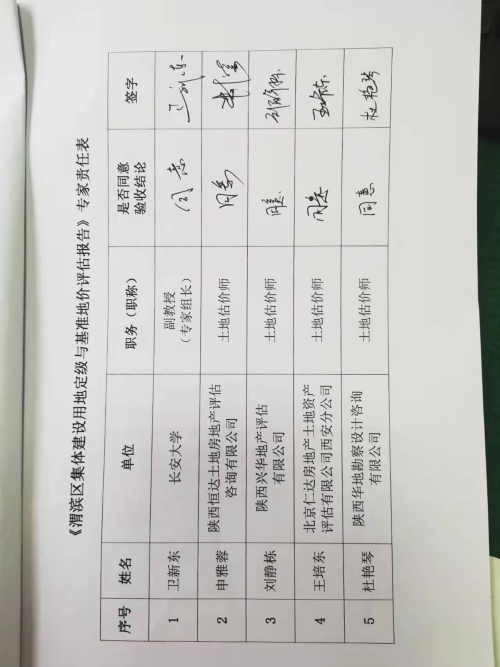 《渭滨区集体建设用地定级与基准地价评估报告》专家责任表
序号 姓名 单位 职务（职称） 是否同意 签字
验收结论
1 卫新东 长安大学 副教授 同意 卫新东
（专家组长）
2 申雅蓉 陕西恒达土地房地产评估 土地估价师 同意
咨询有限公司
3 刘静栋 陕西兴华地产评估 土地估价师 同意 刘静栋
有限公司
4 王培东 北京仁达房地产土地资产 土地估价师 同意 王培东
评估有限公司西安分公司
5 杜艳琴 陕西华地勘察设计咨询 土地估价师 同意 杜艳琴
有限公司